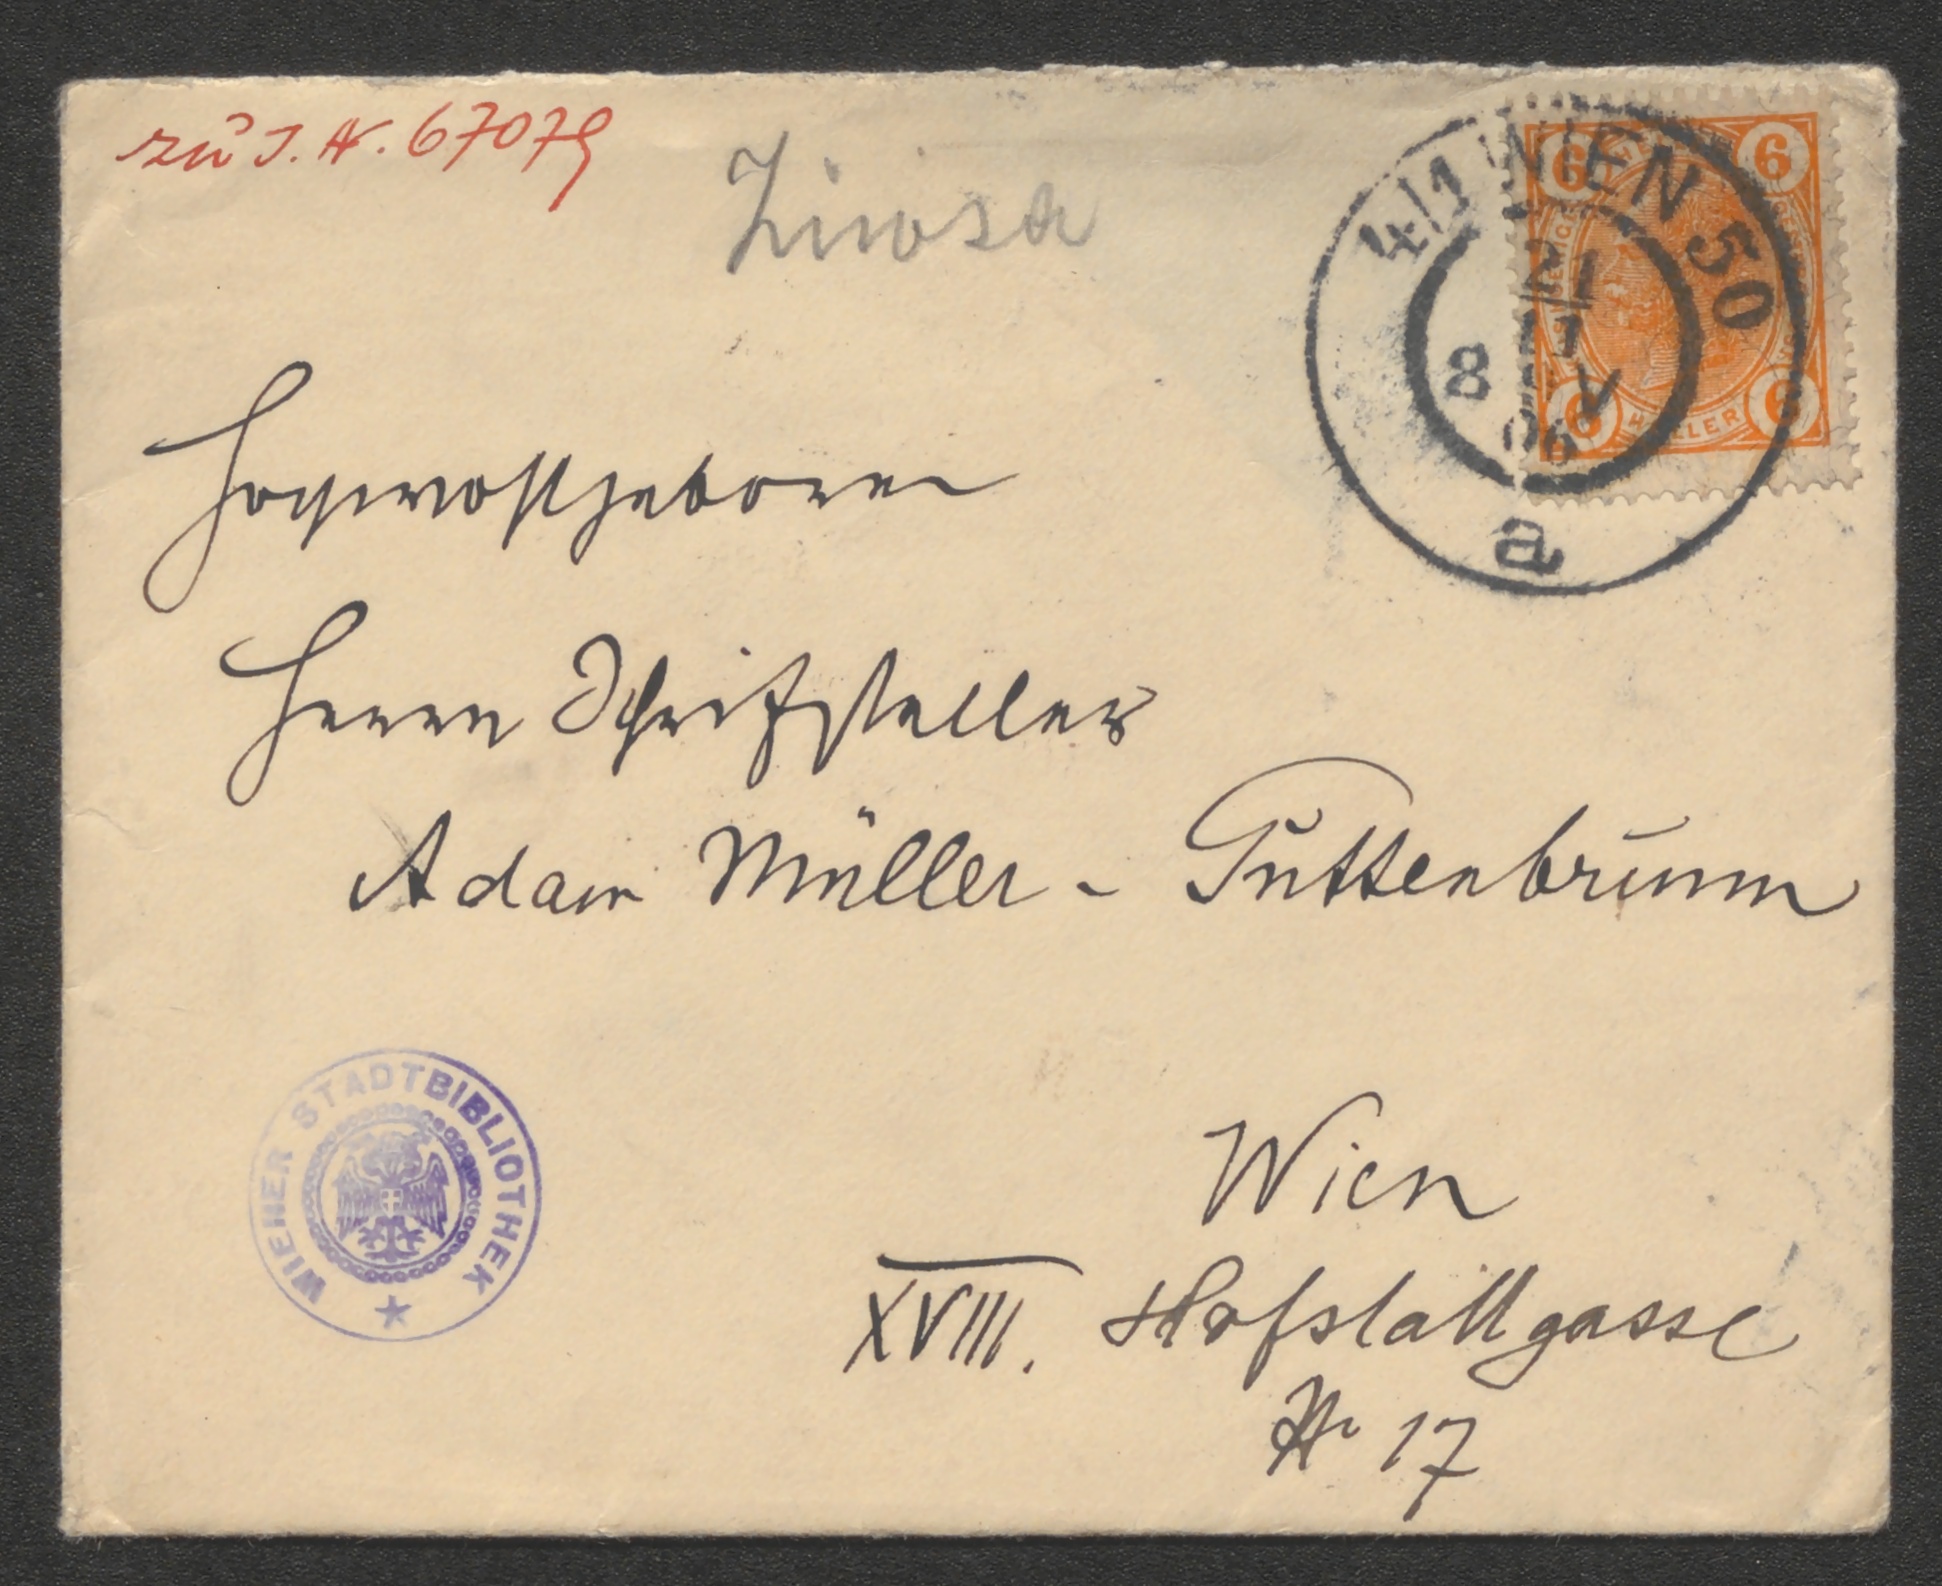 zu J. N. 67079
4/1 WIEN 50
21
11
8 V
06
a
6 6
HELLER
6 6
Hochwohlgeboren
Herrn Schriftsteller
Adam Müller-Guttenbrunn
WIENER STADTBIBLIOTHEK
Wien
XVIII. Hofstattgasse
Nr 17